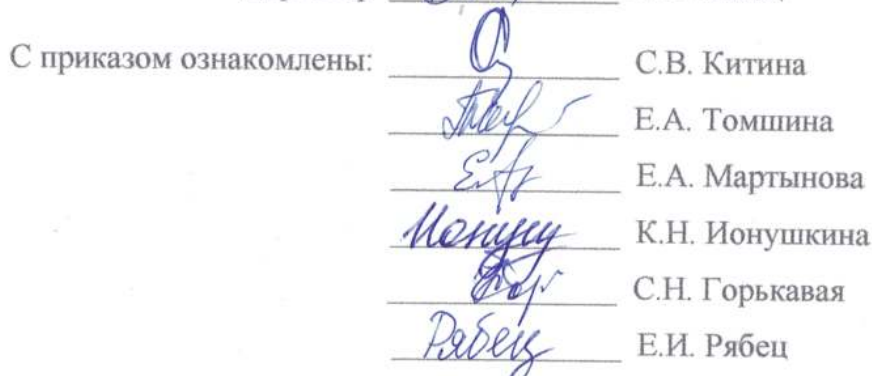 С приказом ознакомлены: С.В. Китина
Е.А. Томшина
Е.А. Мартынова
К.Н. Ионушкина
С.Н. Горькавая
Рябец Е.И. Рябец